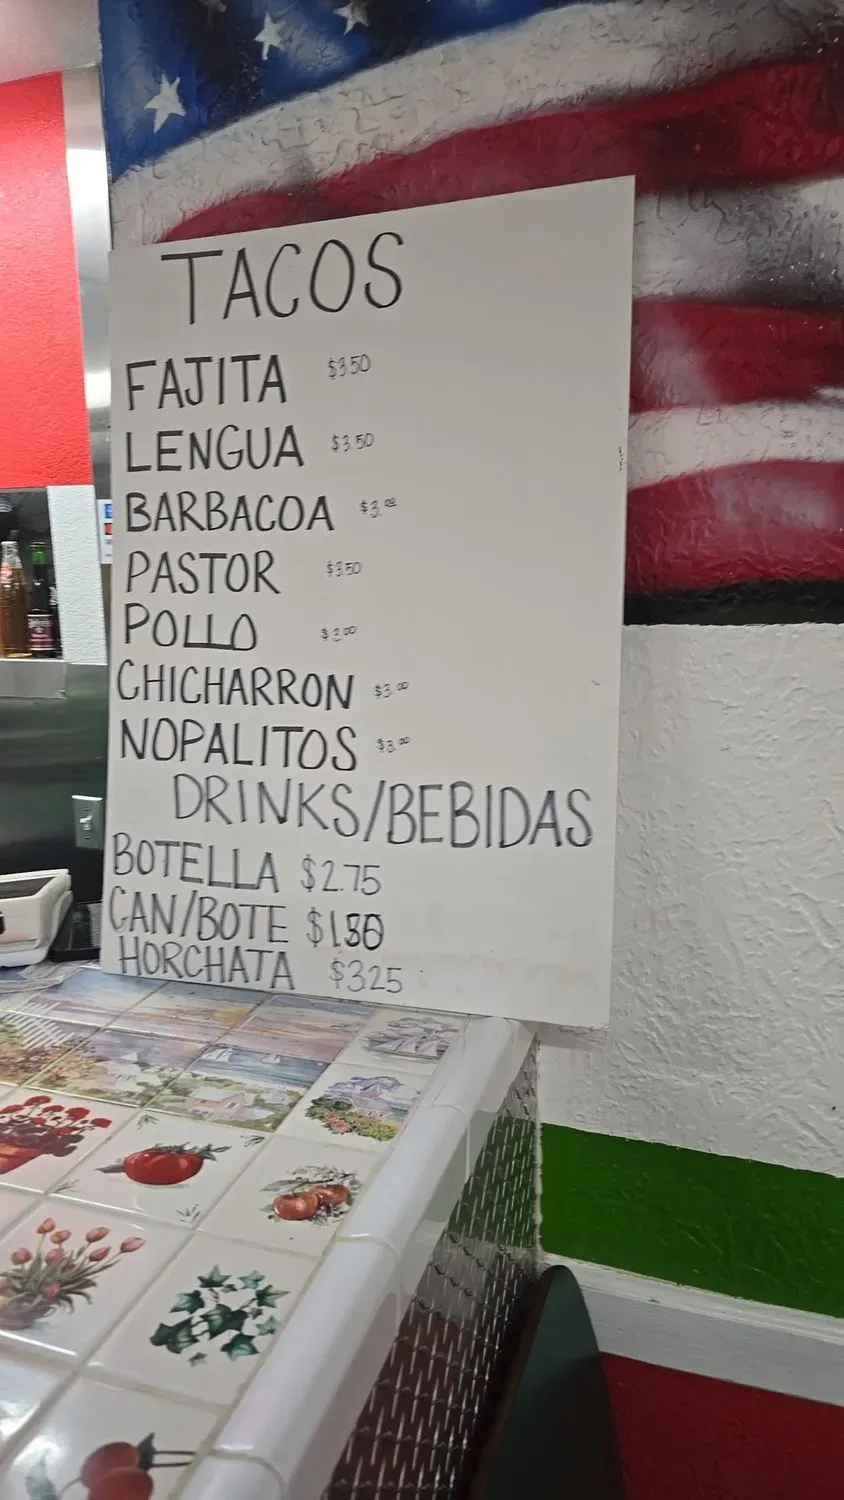 TACOS
FAJITA $3.50
LENGUA $3.50
BARBACOA $3.00
PASTOR $3.50
POLLO
CHICHARRON $3.00
NOPALITOS $3.00
DRINKS/BEBIDAS
BOTELLA $2.75
CAN/BOTE
HORCHATA $325